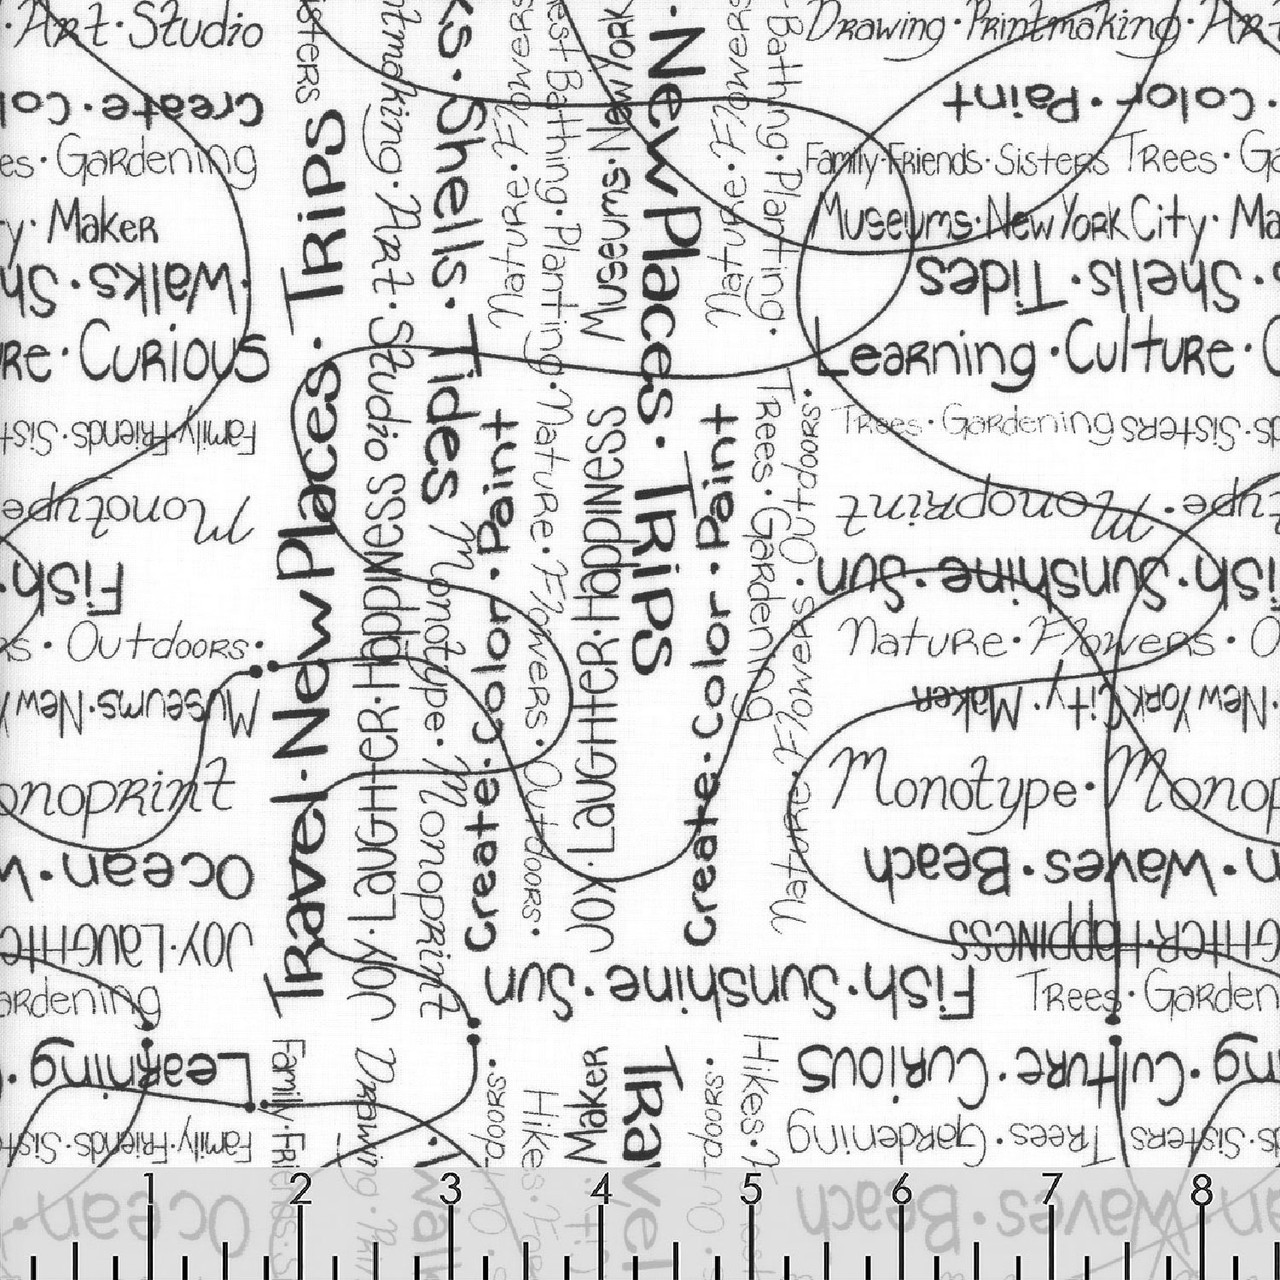 · Art · Studio
Create · Col
es · Gardening
y · Maker
Walks · Sh
re · Curious
Family · Friends · Sist
Monotype
Fish ·
s · Outdoors ·
Museums · New Y
onoprint
Ocean · W
Joy · Laughte
ardening
Learning ·
Family · Friends · Sis
Ocean ·
Travel · New Places · Trips
isters
Family · Friends · Si
Joy · Laughter · Happiness
ntmaking · Art · Studio
Drawing · Prin
Monotype · Monoprint
ks · Shells · Tides
Walk
Create · Color · Paint
Nature · Flowers
Outdoors ·
est Bathing · Planting · Nature · Flowers · Outdoors ·
Hikes · For
Museums · New York
Joy · Laughter · Happiness
Maker
· New Places · Trips
Travel
Create · Color · Paint
Nature · Flowers
Outdoors ·
Bathing · Planting ·
Trees · Gardening
Hikes · Forest
Nature · Flowers · Outdoors ·
Fish · Sunshine · Sun
Drawing · Printmaking · Art
· Color · Paint
Family · Friends · Sisters Trees · Ga
Museums · New York City · Ma
· Shells · Tides
Learning · Culture · C
Trees · Gardening
ds · Sisters
type · Monoprint
Fish · Sunshine · Sun
Nature · Flowers · O
· New York City · Maker
Monotype · Monop
n · Waves · Beach
ghter · Happiness
Trees · Garden
ng · Culture · Curious
ds · Sisters
Trees · Gardening
an · Waves · Beach
1 2 3 4 5 6 7 8